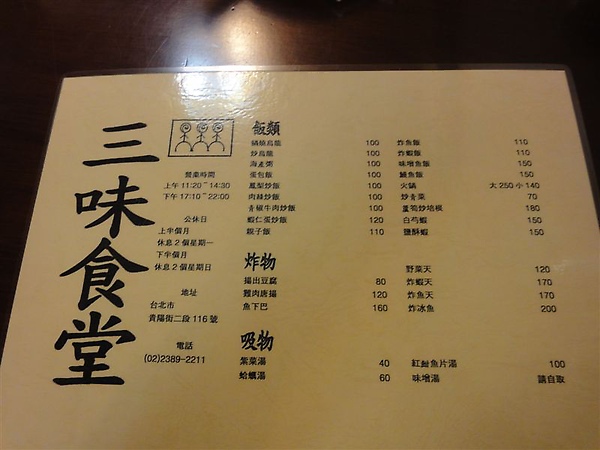 三味食堂
營業時間
上午 11:20~14:30
下午 17:10~22:00
公休日
上半個月
休息 2 個星期一
下半個月
休息 2 個星期日
地址
台北市
貴陽街二段 116 號
電話
(02)2389-2211
飯類
鍋燒烏龍 100 炸魚飯 110
炒烏龍 100 炸蝦飯 110
海產粥 100 味噌魚飯 150
蛋包飯 100 鰻魚飯 150
鳳梨炒飯 100 火鍋 大 250 小 140
肉絲炒飯 100 炒青菜 70
青椒牛肉炒飯 100 蘆筍炒培根 180
蝦仁蛋炒飯 120 白芍蝦 150
親子飯 110 鹽酥蝦 150
炸物
揚出豆腐 80 野菜天 120
雞肉唐揚 120 炸蝦天 170
魚下巴 160 炸魚天 170
炸冰魚 200
吸物
紫菜湯 40 紅鮒魚片湯 100
蛤蠣湯 60 味增湯 請自取